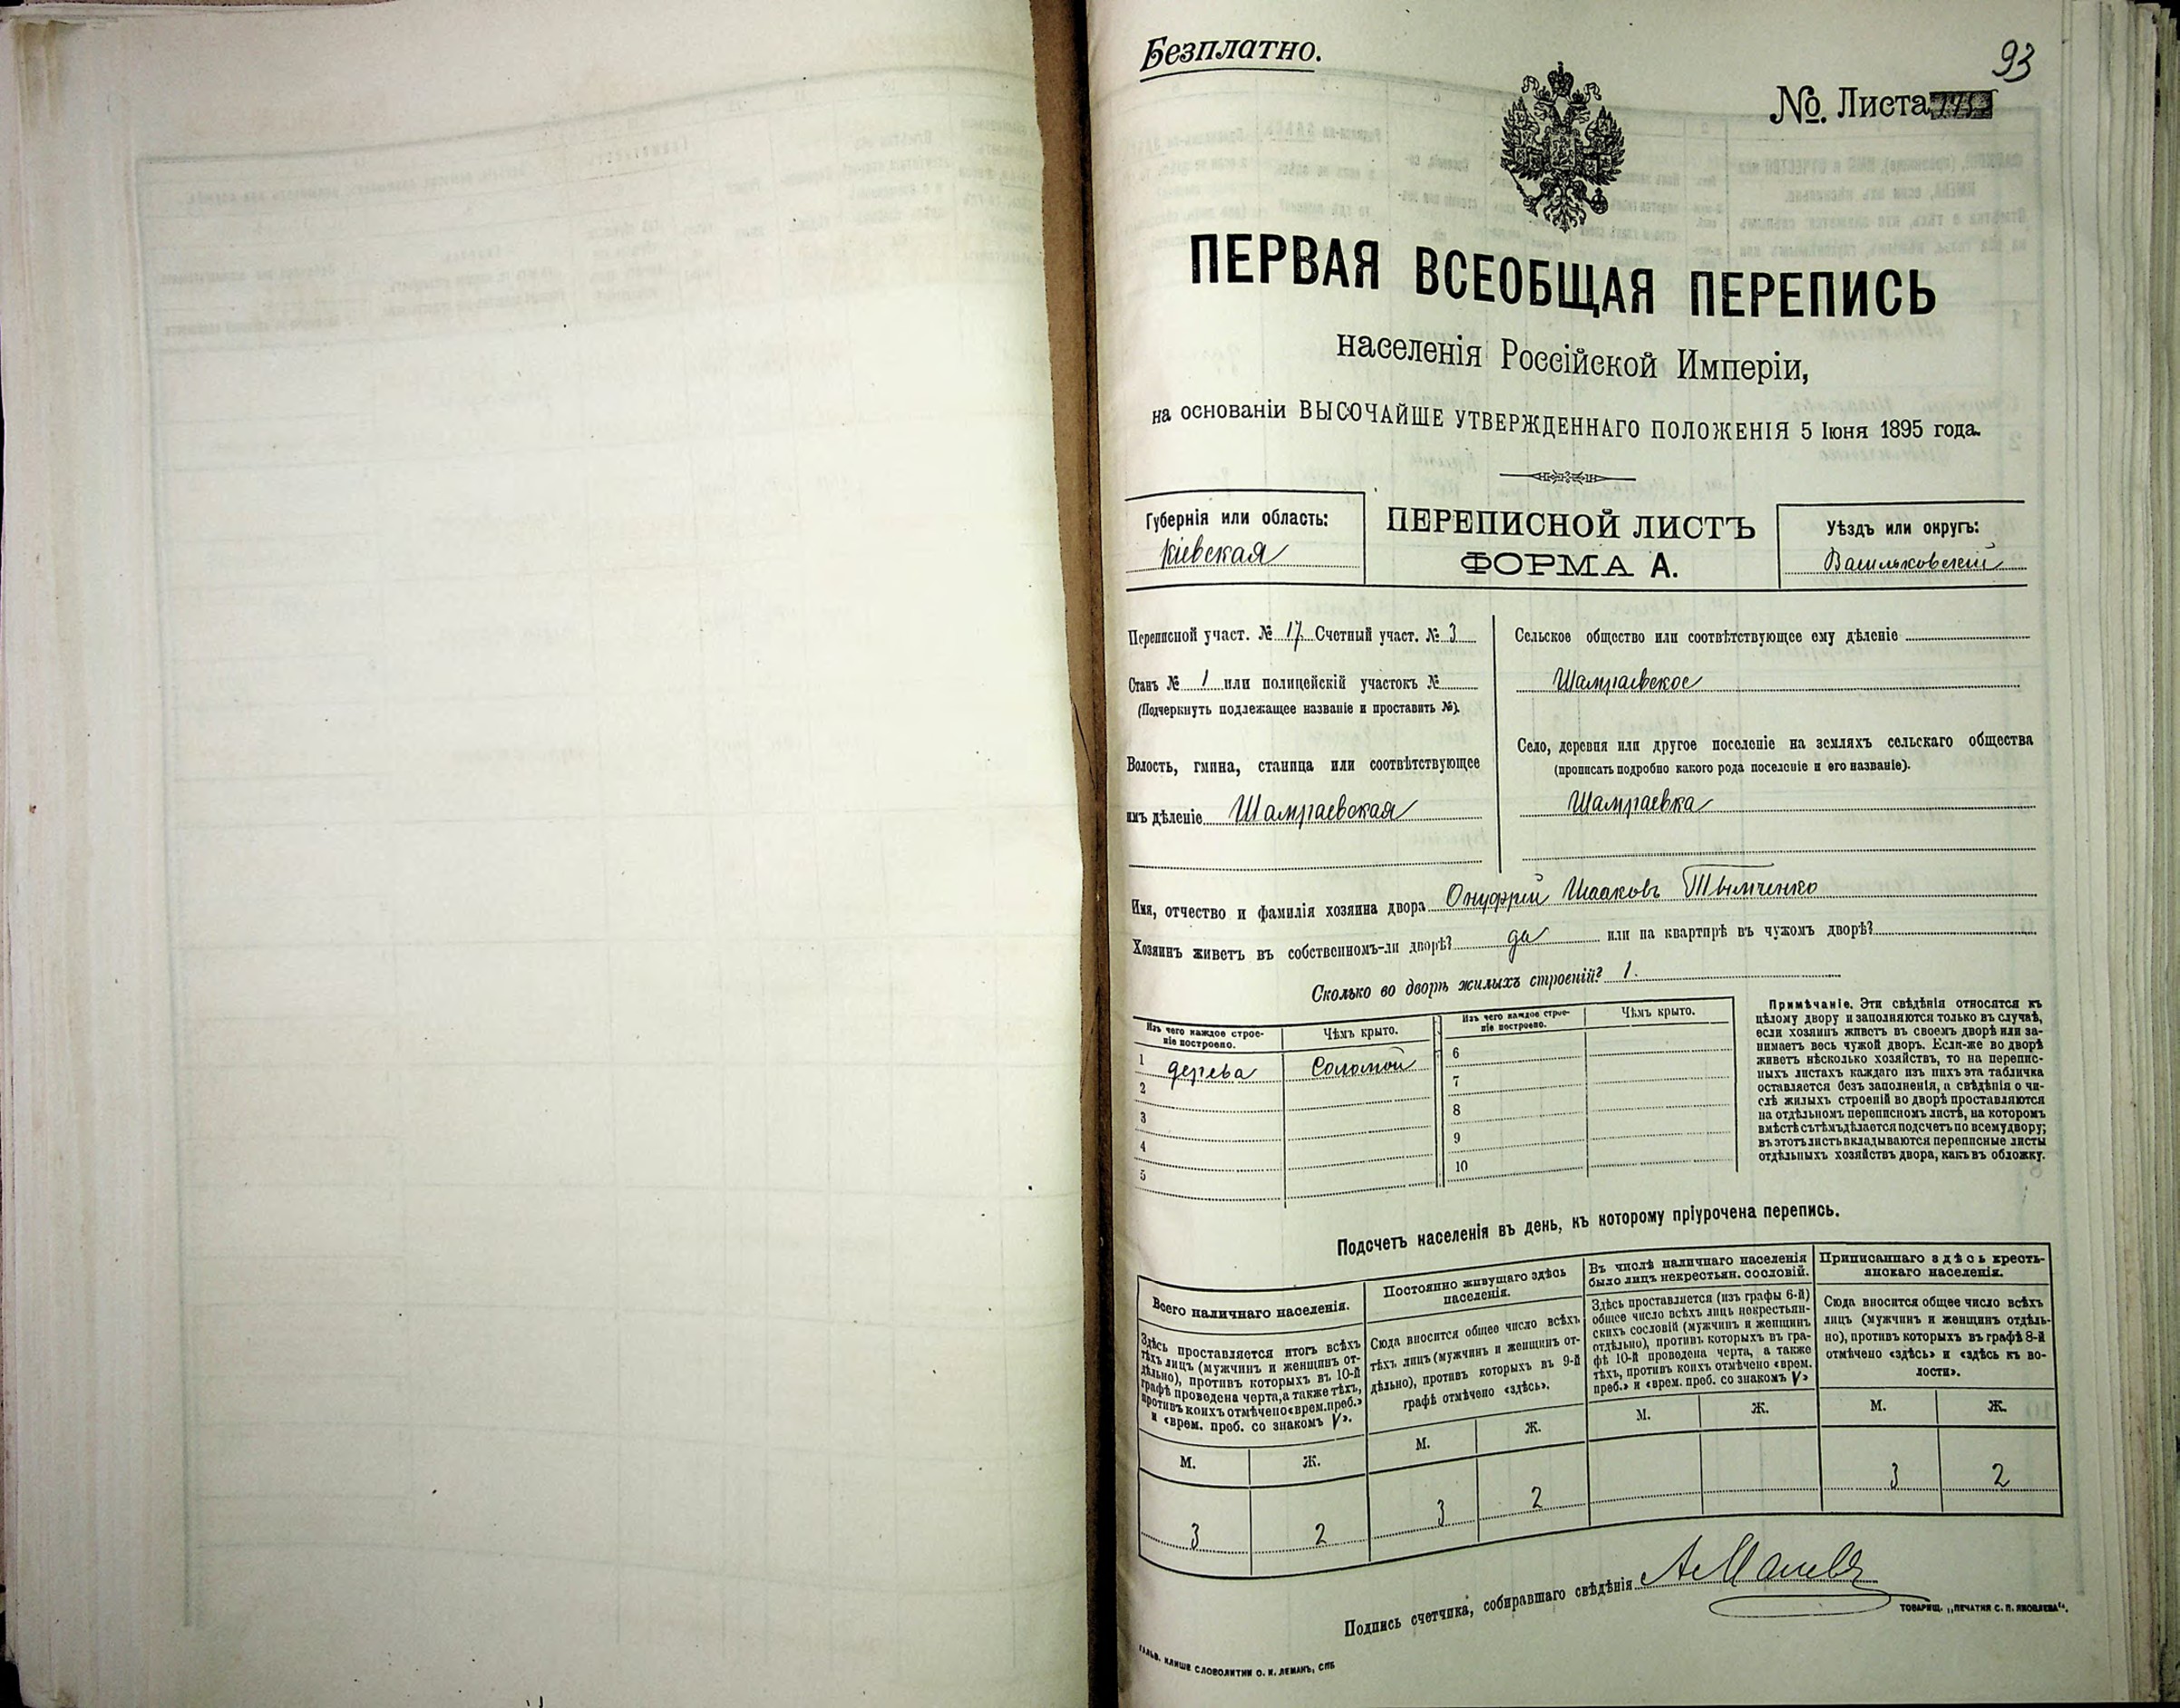 Безплатно.
93
№. Листа
ПЕРВАЯ ВСЕОБЩАЯ ПЕРЕПИСЬ
населенія Россійской Имперіи,
на основаніи ВЫСОЧАЙШЕ УТВЕРЖДЕННАГО ПОЛОЖЕНІЯ 5 Іюня 1895 года.
Губернія или область:
Кіевская
ПЕРЕПИСНОЙ ЛИСТЪ
ФОРМА А.
Уѣздъ или округъ:
Васильковскій
Переписной участ. № 17. Счетный участ. № 3
Станъ № 1 или полицейскій участокъ №
(Подчеркнуть подлежащее названіе и проставить №).
Волость, гмина, станица или соотвѣтствующее
имъ дѣленіе Шамраевская
Сельское общество или соотвѣтствующее ему дѣленіе
Шамраевское
Село, деревня или другое поселеніе на земляхъ сельскаго общества
(прописать подробно какого рода поселеніе и его названіе).
Шамраевка
Имя, отчество и фамилія хозяина двора Онуфрій Исааковъ Тымченко
Хозяинъ живетъ въ собственномъ-ли дворѣ? да или на квартирѣ въ чужомъ дворѣ?
Сколько во дворѣ жилыхъ строеній? 1.
Изъ чего каждое строе-
ніе построено.
Чѣмъ крыто.
Изъ чего каждое строе-
ніе построено.
Чѣмъ крыто.
1 дерева Соломой
2
3
4
5
6
7
8
9
10
Примѣчаніе. Эти свѣдѣнія относятся къ
цѣлому двору и заполняются только въ случаѣ,
если хозяинъ живетъ въ своемъ дворѣ или за-
нимаетъ весь чужой дворъ. Если-же во дворѣ
живетъ нѣсколько хозяйствъ, то на перепис-
ныхъ листахъ каждаго изъ нихъ эта табличка
оставляется безъ заполненія, а свѣдѣнія о чи-
слѣ жилыхъ строеній во дворѣ проставляются
на отдѣльномъ переписномъ листѣ, на которомъ
вмѣстѣ съ тѣмъ дѣлается подсчетъ по всему двору;
въ этотъ листъ вкладываются переписные листы
отдѣльныхъ хозяйствъ двора, какъ въ обложку.
Подсчетъ населенія въ день, къ которому пріурочена перепись.
Всего наличнаго населенія.
Здѣсь проставляется итогъ всѣхъ
тѣхъ лицъ (мужчинъ и женщинъ от-
дѣльно), противъ которыхъ въ 10-й
графѣ проведена черта, а также тѣхъ,
противъ коихъ отмѣчено «врем. преб.»
и «врем. преб. со знакомъ V».
М. Ж.
3 2
Постоянно живущаго здѣсь
населенія.
Сюда вносится общее число всѣхъ
тѣхъ лицъ (мужчинъ и женщинъ от-
дѣльно), противъ которыхъ въ 9-й
графѣ отмѣчено «здѣсь».
М. Ж.
3 2
Въ числѣ наличнаго населенія
было лицъ некрестьян. сословій.
Здѣсь проставляется (изъ графы 6-й)
общее число всѣхъ лицъ некрестьян-
скихъ сословій (мужчинъ и женщинъ
отдѣльно), противъ которыхъ въ гра-
фѣ 10-й проведена черта, а также
тѣхъ, противъ коихъ отмѣчено «врем.
преб.» и «врем. преб. со знакомъ V»
М. Ж.
Приписаннаго здѣсь кресть-
янскаго населенія.
Сюда вносится общее число всѣхъ
лицъ (мужчинъ и женщинъ отдѣль-
но), противъ которыхъ въ графѣ 8-й
отмѣчено «здѣсь» и «здѣсь къ во-
лости».
М. Ж.
3 2
Подпись счетчика, собиравшаго свѣдѣнія
ТОВАРИЩ. „ПЕЧАТНЯ С. П. ЯКОВЛЕВА“.
ГАЛЬВ. КЛИШЕ СЛОВОЛИТНИ О. И. ЛЕМАНЪ, СПБ